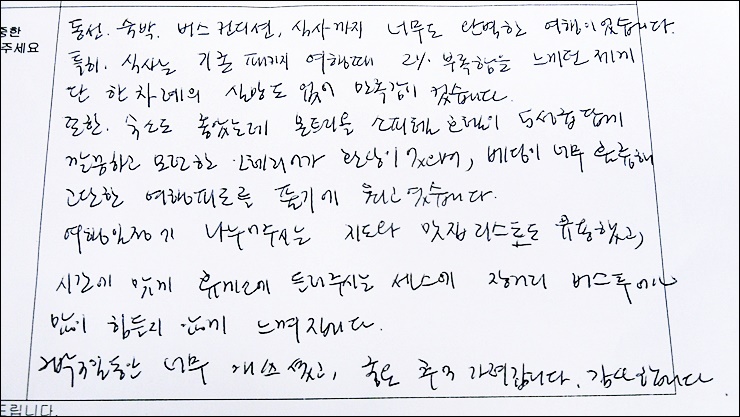 중한
주세요
동선. 숙박. 버스 컨디션, 식사까지 너무도 완벽한 여행이었습니다.
특히. 식사는 기존 패키지 여행때 2% 부족함을 느끼던 제게
단 한차례의 실망도 없이 만족감이 컸습니다.
또한. 숙소도 좋았는데 몬트리올 소피텔 호텔이 5성급답게
깔끔하고 모던한 인테리어가 환상이었으며, 베딩이 너무 훌륭해
고단한 여행피로를 풀기에 최고였습니다.
여행일정기 나누어주시는 지도와 맛집 리스트도 유용했고,
시간에 맞게 휴게소에 들려주시는 센스에 장거리 버스투어도
많이 힘든지 않게 느껴집니다.
동안 너무 즐거웠고, 좋은 추억 가져갑니다. 감사합니다
드립니다.